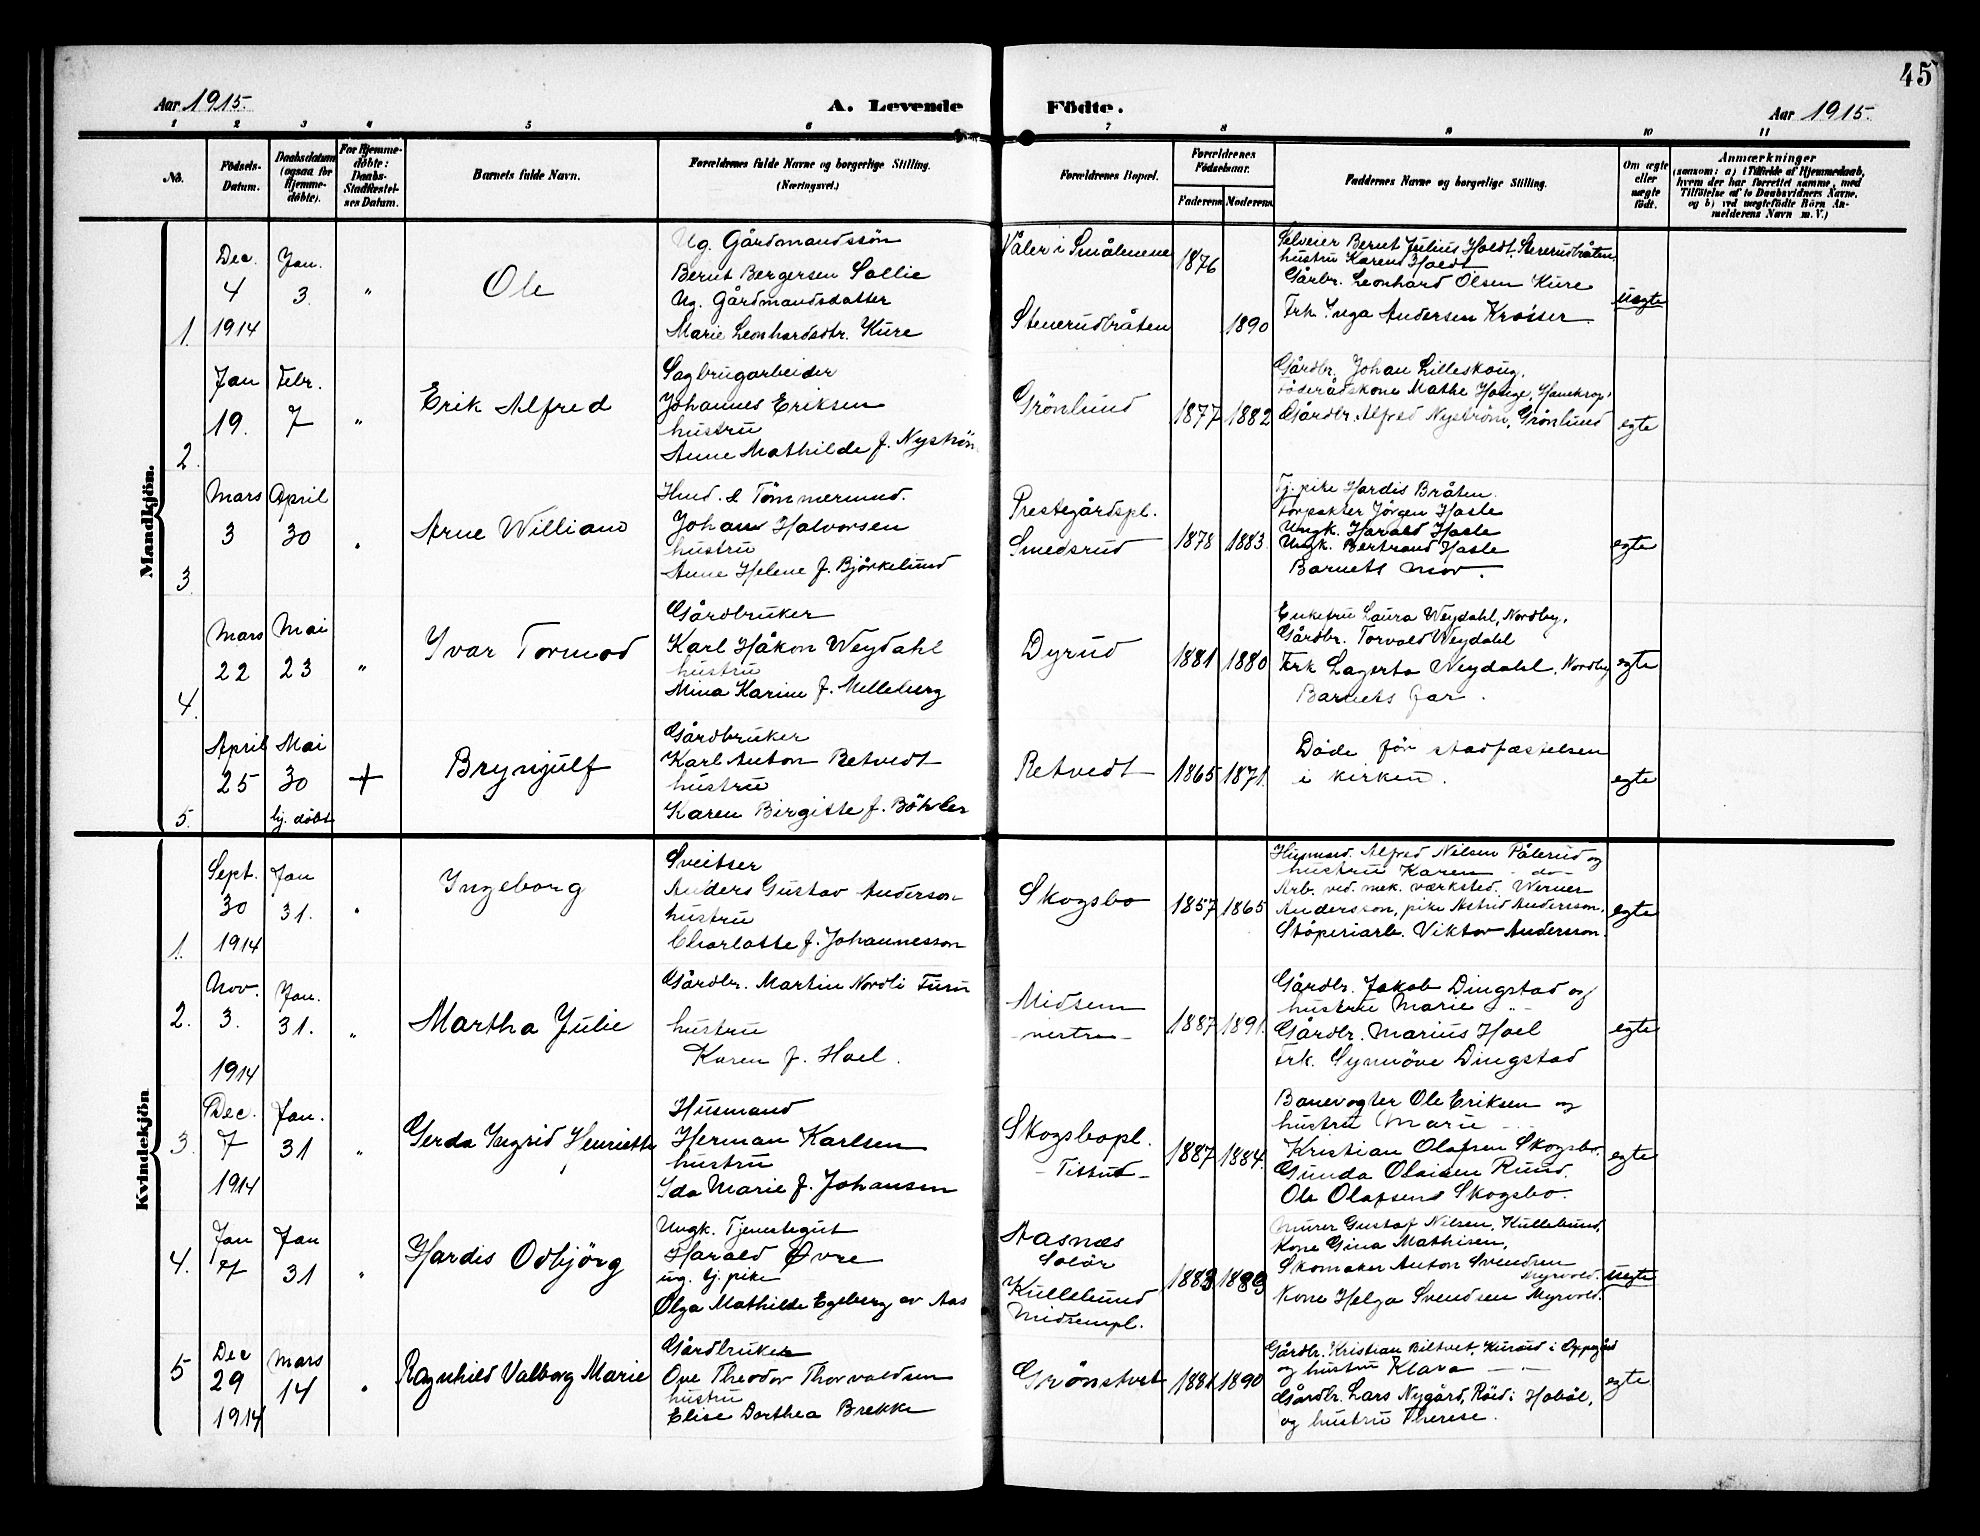 45
Aar 1915.
A. Levende
Födte.
Aar 1915.
1 2 3 4 5 6 7 8 9 10 11
No.
Födsels-
Datum.
Daabsdatum
(ogsaa for
Hjemme-
döbte).
For Hjemme-
döbte:
Daabs-
Stadfæstel-
ses Datum.
Barnets fulde Navn.
Forældrenes fulde Navne og borgerlige Stilling.
(Næringsvei.)
Forældrenes Bopæl.
Forældrenes
Födselsaar.
Faderens Moderens
Faddernes Navne og borgerlige Stilling.
Om ægte
eller
uægte
födt.
Anmærkninger
(saasom: a) i Tilfælde af Hjemmedaab,
hvem der har forrettet samme, med
Tilföielse af to Daabsvidners Navne,
og b) ved uægtefödte Börn An-
melderens Navn m. V.)
Mandkjön.
1.
Dec.
4
1914
Jan.
3.
"
Ole
Ug. Gårdmandssön
Bernt Bergersen Sollie
Ug. Gårdmandsdatter
Marie Leonhardsdtr. Kure
Våler i Smålenene
Stenerudbråten
1876
1890
Selveier Bernt Julius Holdt, Stenerudbråten
hustru Karen Holdt
Gårbr. Leonhard Olsen Kure
Frk. Inga Andersen Kroiser
uegte
2.
Jan
19.
Febr.
7
"
Erik Alfred
Sagbrugarbeider
Johannes Eriksen
hustru
Anne Mathilde f. Nyström
Grönlund
1877
1882
Gårdbr. Johan Lilleskoug.
Föderådskone Mathe Hauge,
Gårdbr. Alfred Nyström, Grönlund
egte
3.
Mars
3
April
30
"
Arne William
Husd. & Tömmermand.
Johan Halvorsen
hustru
Anne Helene f. Björkelund
Prestegårdspl.
Smedsrud
1878
1883.
Tj. pike Hardis Bråten.
Forpakter Jörgen Hasle
Ungk. Harald Hasle
Ungk. Bertrand Hasle
Barnets mor.
egte
4.
Mars
22
Mai
23
"
Yvar Tormod
Gårdbruker
Karl Håkon Weydahl
hustru
Mina Karine f. Melleberg
Dyrud
1881
1880
Enkefru Laura Weydahl, Nordby.
Gårdbr. Torvald Weydahl
Frk Lagerta Weydahl, Nordby
Barnets far.
egte
5.
April
25
Mai
30
hj. döbt
+
Brynjulf
Gårdbruker
Karl Anton Retvedt
hustru
Karen Birgitte f. Böhler
Retvedt
1865
1871.
Döde för stadfæstelsen
i kirken.
egte
Kvindekjön
1.
Sept.
30
1914
Jan
31.
"
Ingeborg
Sveitser
Anders Gustav Anderson
hustru
Charlotte f. Johannesson
Skogsbo
1857
1865
Husmd. Alfred Nilsen Pålerud og
hustru Karen - do -
Arb. ved. mek. værksted. Werner
Anderson, pike Astrid Andersson.
Stöperiarb. Viktor Andersson.
egte
2.
Nov.
3.
1914
Jan.
31.
"
Martha Julie
Gårdbr. Martin Nordli Turn
hustru
Karen f. Hoel.
Midsem
- nertre -
1887
1891.
Gårdbr. Jakob Dingstad og
hustru Marie - " -
Gårdbr. Marius Hoel
Frk. Synnöve Dingstad
egte
3.
Dec.
7
1914
Jan.
31
"
Gerda Ingrid Henriette
Husmand
Herman Karlsen
hustru
Ida Marie f. Johansen
Skogsbopl.
- Tittut -
1887
1884.
Banevogter Ole Eriksen og
hustru Marie - " -
Kristian Olafsen Skogsbo.
Gunda Olaisen Rund.
Ole Olafsen Skogsbo.
egte
4.
Jan
7
Jan
31
"
Hardis Odbjörg
Ungk. Tjenestegut
Harald Övre
ug. tj. pike
Olga Mathilde Egeberg av Aas
Aasnæs
Solör
Kullebund
Midsempl.
1883
1889
Murer Gustaf Nilsen, Kullebund,
Kone Gina Mathisen,
Skomaker Anton Svendsen
Myrvold.
Kone Helga Svendsen Myrvold.
uegte
5
Dec
29
1914
Mars
14
"
Ragnhild Valborg Marie
Gårdbruker
Ove Theodor Thorvaldsen
hustru
Elise Dorthea Brekke
Grönstvet
1881
1890
Gårdbr. Kristian Biltvet, Kurud i Oppegård
og hustru Klara - " -
Gårdbr. Lars Nygård, Röed i Hobøl,
og hustru Therese.
egte